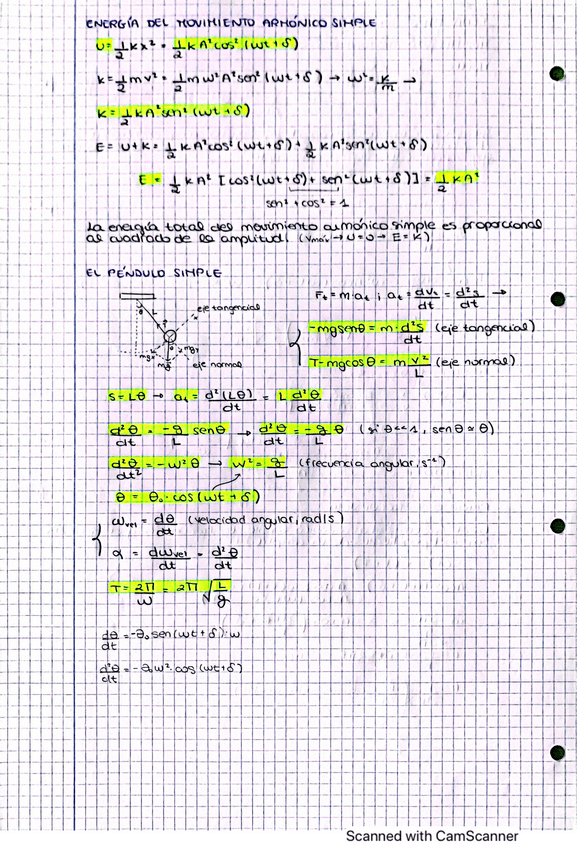 ENERGÍA DEL MOVIMIENTO ARMÓNICO SIMPLE
U = 1/2 k x² = 1/2 k A² cos² (ωt + δ)
K = 1/2 m v² = 1/2 m ω² A² sen² (ωt + δ) → ω² = K/m →
K = 1/2 k A² sen² (ωt + δ)
E = U + K = 1/2 k A² cos² (ωt + δ) + 1/2 k A² sen² (ωt + δ)
E = 1/2 k A² [cos² (ωt + δ) + sen² (ωt + δ)] = 1/2 k A²
sen² + cos² = 1
La energía total del movimiento armónico simple es proporcional
al cuadrado de la amplitud. (vmáx → U = 0 → E = K)
EL PÉNDULO SIMPLE
eje tangencial
eje normal
mg
Ft = m · at ; at = dvt/dt = d²s/dt →
-mg sen θ = m · d²s/dt (eje tangencial)
T - mg cos θ = m v²/L (eje normal)
s = Lθ → at = d²(Lθ)/dt = L d²θ/dt
d²θ/dt = -g/L sen θ → d²θ/dt = -g/L θ (si θ << 1, sen θ ≈ θ)
d²θ/dt² = -ω² θ → ω² = g/L (frecuencia angular, s⁻¹)
θ = θ₀ · cos (ωt + δ)
ωvel = dθ/dt (velocidad angular, rad/s)
α = dωvel/dt = d²θ/dt
T = 2π/ω = 2π √L/g
dθ/dt = -θ₀ sen (ωt + δ) · ω
d²θ/dt = -θ₀ ω² · cos (ωt + δ)
Scanned with CamScanner